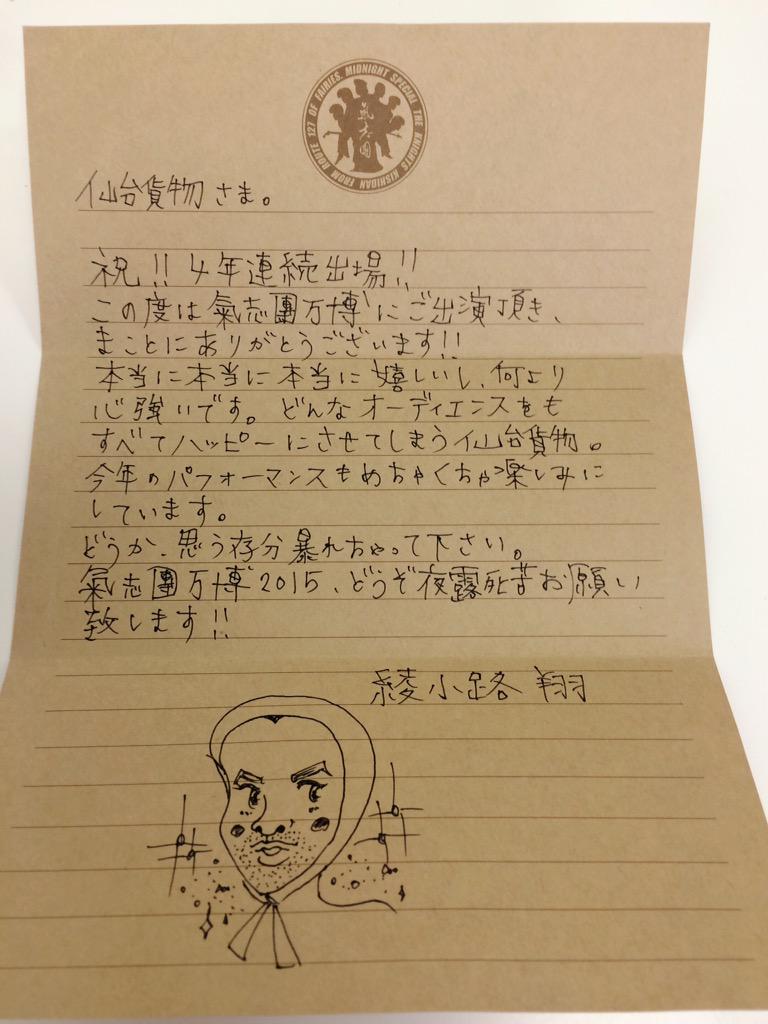 FROM ROUTE 127 OF FAIRIES. MIDNIGHT SPECIAL THE KNIGHTS KISHIDAN
氣志團
仙台貨物さま。
祝!!4年連続出場!!
この度は氣志團万博にご出演頂き、
まことにありがとうございます!!
本当に本当に本当に嬉しいし、何より
心強いです。どんなオーディエンスをも
すべてハッピーにさせてしまう仙台貨物。
今年のパフォーマンスもめちゃくちゃ楽しみに
しています。
どうか、思う存分暴れちゃって下さい。
氣志團万博2015、どうぞ夜露死苦お願い
致します!!
綾小路 翔